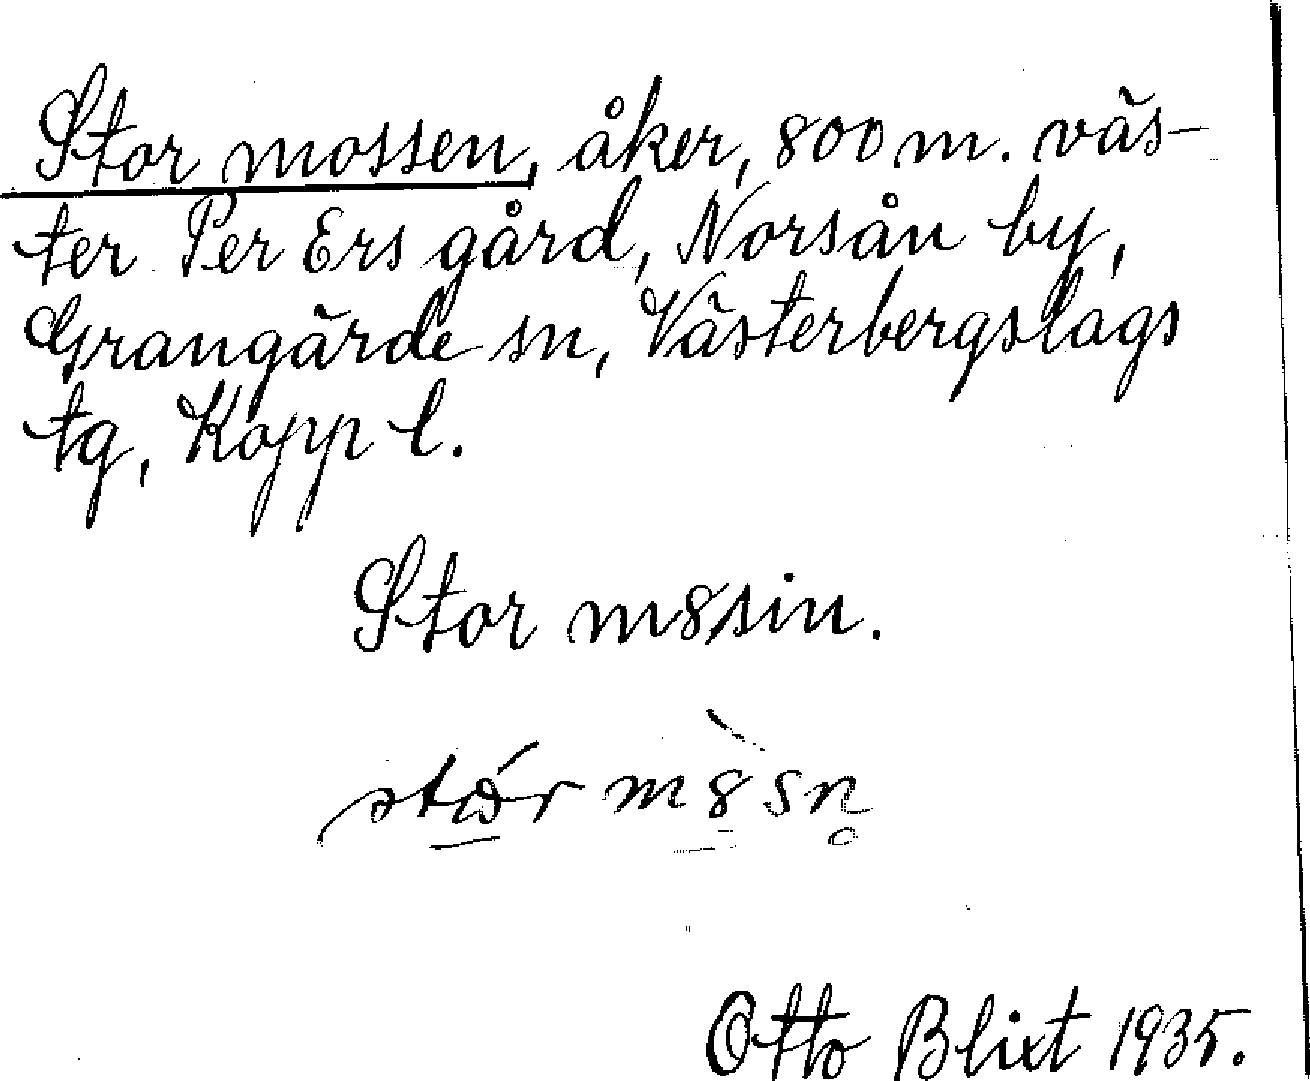 Stor mossen, åker, 800 m. väs-
ter Per Ers gård, Norsån by,
Grangärde sn, Västerbergslags
tg, Kopp l.
Stor m8sin.
m8̀sn̥
Otto Blixt 1935.